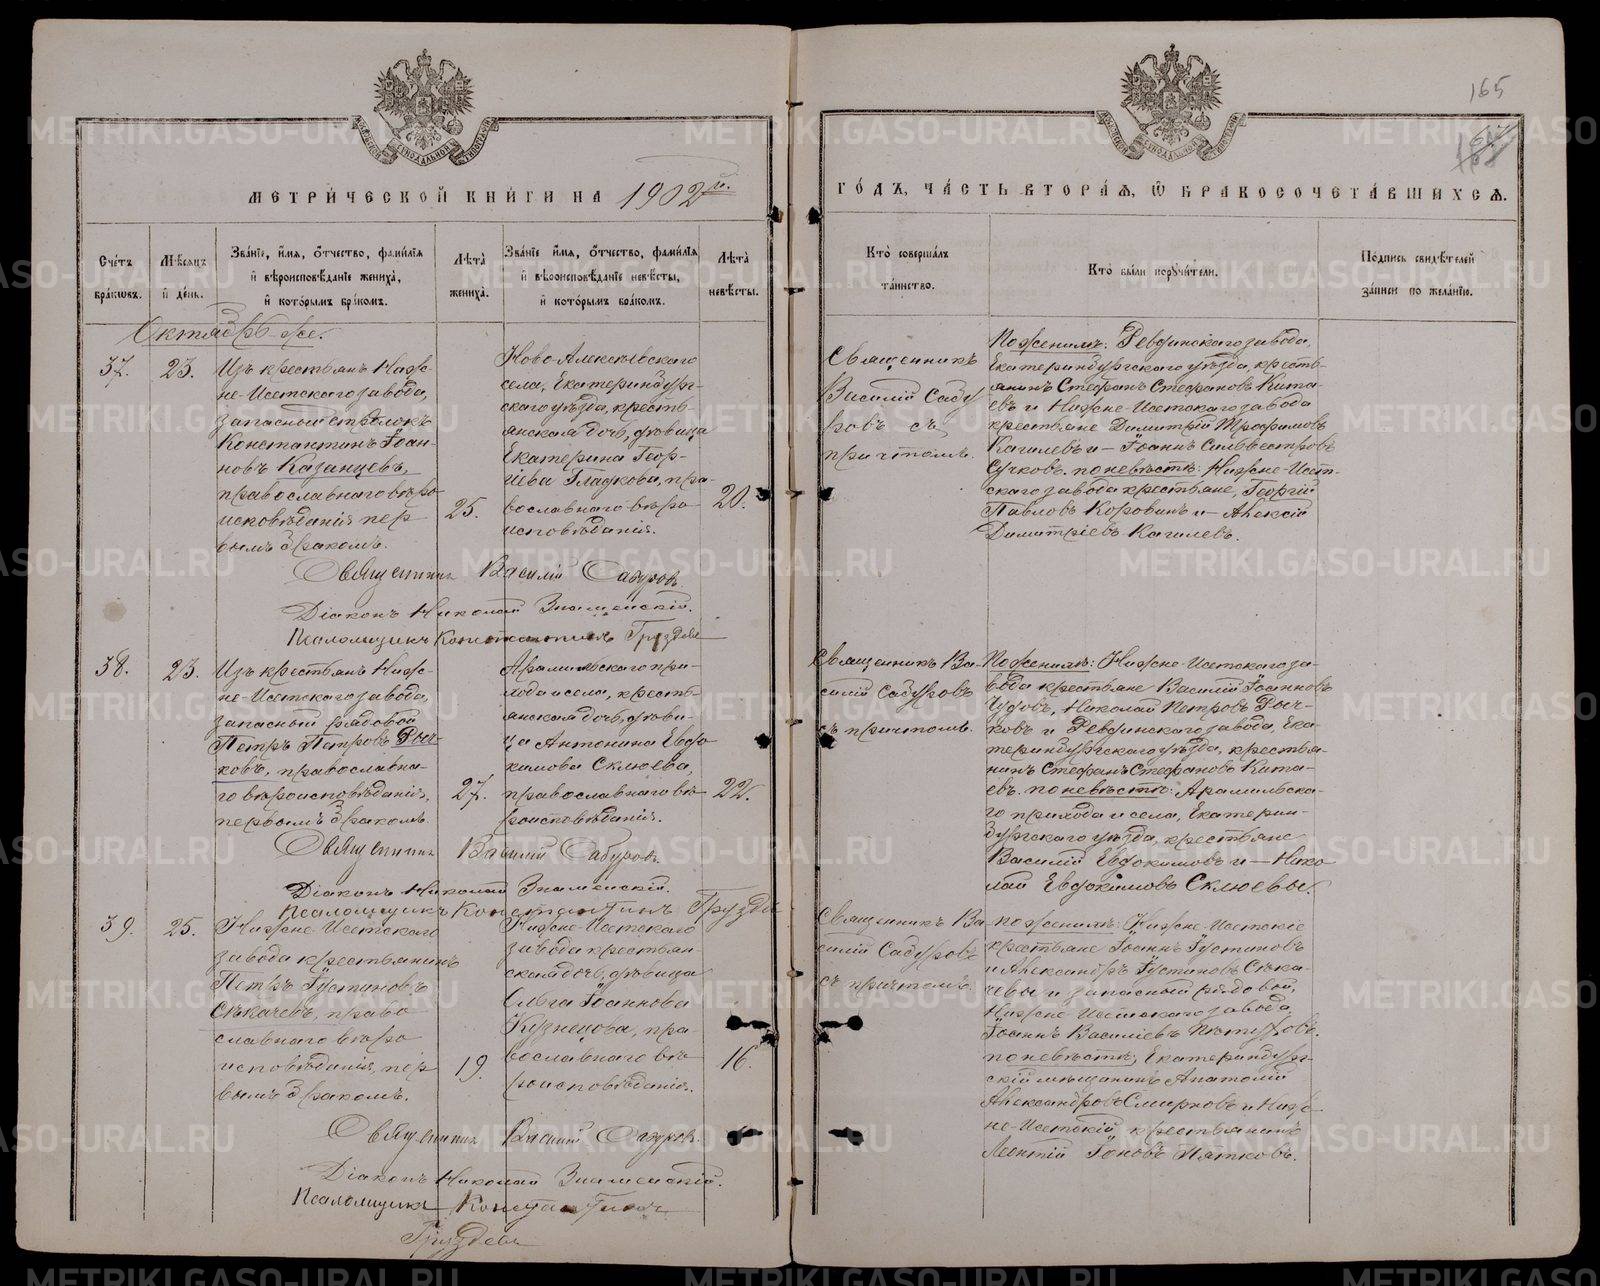 165
МЕТРИ́ЧЕСКОЙ КНИ́ГИ НА 1902й.
ГО́ДЪ, ЧА́СТЬ ВТОРА́Я, Ѡ БРАКОСОЧЕТА́ВШИХСЯ.
Сче́тъ бра́ковъ.
Мѣ́сяцъ и́ де́нь.
Зва́нїе, и́мя, о́тчество, фами́лїя и́ вѣроисповѣ́данїе жениха̀, и́ кото́рымъ бра́комъ.
Лѣта̀ жениха̀.
Зва́нїе и́мя, о́тчество, фами́лїя и́ вѣроисповѣ́данїе невѣ́сты, и́ кото́рымъ бра́комъ.
Лѣта̀ невѣ́сты.
Кто̀ соверша́лъ та́инство.
Кто̀ бы́ли поручи́тели.
По́дпись свидѣ́телей за́писи по жела́нїю.
Октября-же.
37.
23.
Изъ крестьянъ Ниж-
не-Исетскаго завода,
запасный стрѣлокъ
Константинъ Іоан-
новъ Казанцевъ,
православнаго вѣро-
исповѣданія пер-
вымъ бракомъ.
25.
Ново-Алексѣевскаго
села, Екатеринбург-
скаго уѣзда, кресть-
янская дочь, дѣвица
Екатерина Геор-
гіева Гладкова, пра-
вославнаго вѣро-
исповѣданія.
20.
Священникъ
Василій Сабу
ровъ съ
причтомъ.
По женихѣ: Ревдинскаго завода,
Екатеринбургскаго уѣзда, кресть-
янинъ Стефанъ Стефановъ Кита-
евъ и Нижне-Исетскаго завода
крестьяне Димитрій Трофимовъ
Качилевъ и - Іоаннъ Сильвестровъ
Сучковъ. по невѣстѣ: Нижне-Исет-
скаго завода крестьяне, Георгій
Павловъ Коровинъ и - Алексій
Димитріевъ Качилевъ.
Священникъ Василій Сабуровъ.
Діаконъ Николай Знаменскій.
Псаломщикъ Константинъ Груздевъ
38.
23.
Изъ крестьянъ Ниж-
не-Исетскаго завода,
запасный рядовой
Петръ Петровъ Рыч-
ковъ, православна-
го вѣроисповѣданія,
первымъ бракомъ.
27.
Арамильскаго при-
хода и села, кресть-
янская дочь, дѣви-
ца Антонина Евдо-
кимова Склюева,
православнаго вѣ-
роисповѣданія.
22.
Священникъ Ва-
силій Сабуровъ
съ причтомъ.
По женихѣ: Нижне-Исетскаго за-
вода крестьяне Василій Іоанновъ
Чудовъ, Николай Петровъ Рыч-
ковъ и Ревдинскаго завода, Ека-
теринбургскаго уѣзда, крестья-
нинъ Стефанъ Стефановъ Кита-
евъ. по невѣстѣ: Арамильска-
го прихода и села, Екатерин-
бургскаго уѣзда, крестьяне
Василій Евдокимовъ и - Нико
лай Евдокимовъ Склюевы.
Священникъ Василій Сабуровъ.
Діаконъ Николай Знаменскій.
Псаломщикъ Константинъ Груздев
39.
25.
Нижне-Исетскаго
завода крестьянинъ
Петръ Іустиновъ
Сѣкачевъ, право
славнаго вѣро
исповѣданія, пер
вымъ бракомъ.
19.
Нижне-Исетскаго
завода крестьян-
ская дочь, дѣвица
Ольга Іоаннова
Кузнецова, пра-
вославнаго вѣ-
роисповѣданія.
16.
Священникъ Ва-
силій Сабуровъ
съ причтомъ.
по женихѣ: Нижне-Исетскіе
крестьяне Іоаннъ Іустиновъ
и Александръ Іустиновъ Сѣка-
чевы и запасный рядовой,
Нижне-Исетскаго завода,
Іоаннъ Василіевъ Пѣтуховъ.
по невѣстѣ, Екатеринбург-
скій мѣщанинъ Анатолій
Александровъ Смирновъ и Ниж-
не-Исетскій крестьянинъ
Леонтій Іоновъ Пятковъ.
Священникъ Василій Сабуровъ.
Діаконъ Николай Знаменскій.
Псаломщикъ Константинъ
Груздевъ
METRIKI.GASO-URAL.RU